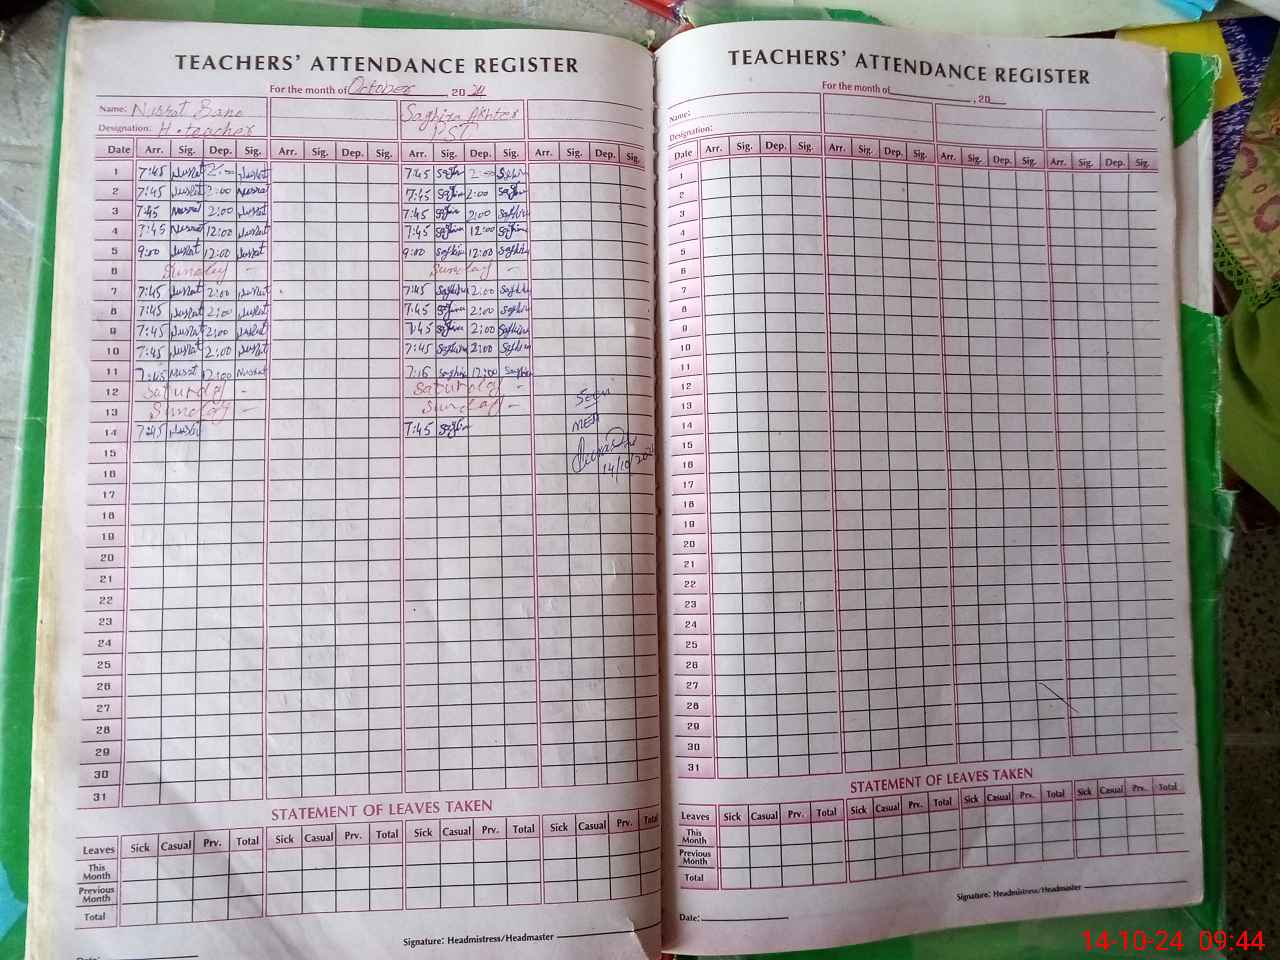 TEACHERS' ATTENDANCE REGISTER
For the month of October, 2024
Name: Nusrat Bano Saghira Akhter
Designation: H. teacher PST
Date Arr. Sig. Dep. Sig. Arr. Sig. Dep. Sig. Arr. Sig. Dep. Sig. Arr. Sig. Dep. Sig.
1 7:45 Nusrat 2:00 Nusrat 7:45 Saghira 2:00 Saghira
2 7:45 Nusrat 2:00 Nusrat 7:45 Saghira 2:00 Saghira
3 7:45 Nusrat 2:00 Nusrat 7:45 Saghira 2:00 Saghira
4 7:45 Nusrat 12:00 Nusrat 7:45 Saghira 12:00 Saghira
5 9:00 Nusrat 12:00 Nusrat 9:00 Saghira 12:00 Saghira
6 Sunday - Sunday -
7 7:45 Nusrat 2:00 Nusrat 7:45 Saghira 2:00 Saghira
8 7:45 Nusrat 2:00 Nusrat 7:45 Saghira 2:00 Saghira
9 7:45 Nusrat 2:00 Nusrat 7:45 Saghira 2:00 Saghira
10 7:45 Nusrat 2:00 Nusrat 7:45 Saghira 2:00 Saghira
11 7:45 Nusrat 12:00 Nusrat 7:16 Saghira 12:00 Saghira
12 Saturday - Saturday -
13 Sunday - Sunday -
14 7:45 Nusrat 7:45 Saghira
Seen
MEA
14/10/2024
15
16
17
18
19
20
21
22
23
24
25
26
27
28
29
30
31
STATEMENT OF LEAVES TAKEN
Leaves Sick Casual Prv. Total Sick Casual Prv. Total Sick Casual Prv. Total Sick Casual Prv. Total
This Month
Previous Month
Total
Signature: Headmistress/Headmaster
TEACHERS' ATTENDANCE REGISTER
For the month of , 20
Name:
Designation:
Date Arr. Sig. Dep. Sig. Arr. Sig. Dep. Sig. Arr. Sig. Dep. Sig. Arr. Sig. Dep. Sig.
1
2
3
4
5
6
7
8
9
10
11
12
13
14
15
16
17
18
19
20
21
22
23
24
25
26
27
28
29
30
31
STATEMENT OF LEAVES TAKEN
Leaves Sick Casual Prv. Total Sick Casual Prv. Total Sick Casual Prv. Total Sick Casual Prv. Total
This Month
Previous Month
Total
Signature: Headmistress/Headmaster
Date:
14-10-24 09:44